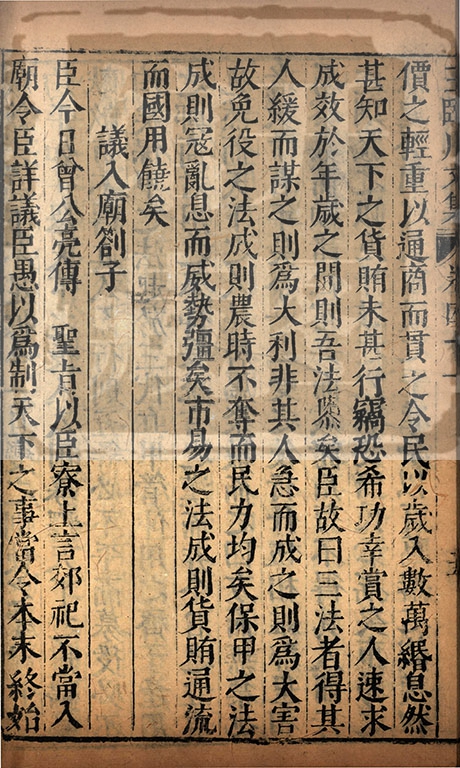 價之輕重以通商而貫之令民以歲入數萬緡息然
甚知天下之貨賄未甚行竊恐希功幸賞之人速求
成效於年歲之間則吾法隳矣臣故曰三法者得其
人緩而謀之則爲大利非其人急而成之則爲大害
故免役之法成則農時不奪而民力均矣保甲之法
成則寇亂息而威勢彊矣市易之法成則貨賄通流
而國用饒矣
議入廟劄子
臣今日曾公亮傳 聖旨以臣寮上言郊祀不當入
廟令臣詳議臣愚以爲制天下之事當令本末終始